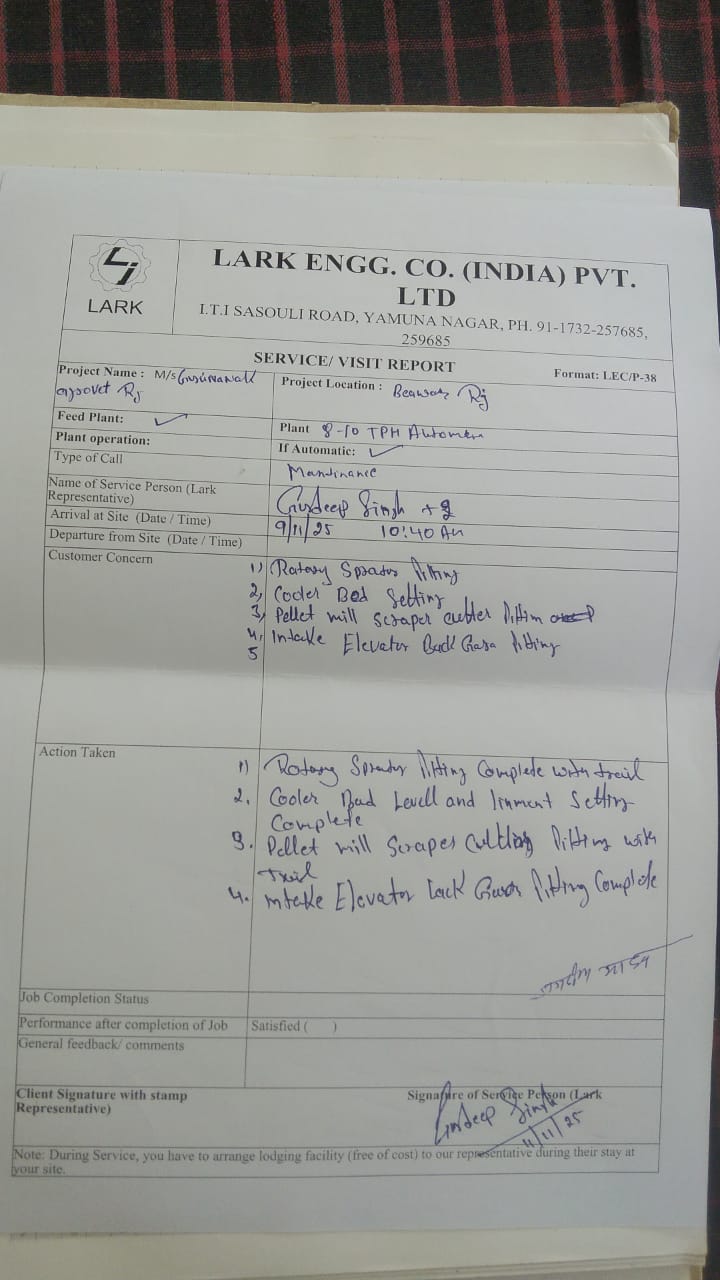 LARK
LARK ENGG. CO. (INDIA) PVT.
LTD
I.T.I SASOULI ROAD, YAMUNA NAGAR, PH. 91-1732-257685,
259685
SERVICE/ VISIT REPORT
Format: LEC/P-38
Project Name : M/s
Rj
Project Location : Beawar Rj
Feed Plant: ✓
Plant 8-10 TPH
Plant operation:
If Automatic: ✓
Type of Call
Mantinance
Name of Service Person (Lark
Representative)
Gurdeep Singh +2
Arrival at Site (Date / Time)
9/11/25 10:40 AM
Departure from Site (Date / Time)
Customer Concern
1) Rotary fitting
2, Cooler Bed Setting
3, Pellet mill scraper cutter
4, Intake Elevator fitting
5
Action Taken
1) Rotary fitting Complete with trail
2. Cooler Bad Levell and linment Setting
Complete
3. Pellet mill Scraper fitting with
trail
4. intake Elevator fitting Complete
Job Completion Status
Performance after completion of Job
Satisfied ( )
General feedback/ comments
Client Signature with stamp
Representative)
Signature of Service Person (Lark
Gurdeep Singh
11/11/25
Note: During Service, you have to arrange lodging facility (free of cost) to our representative during their stay at
your site.